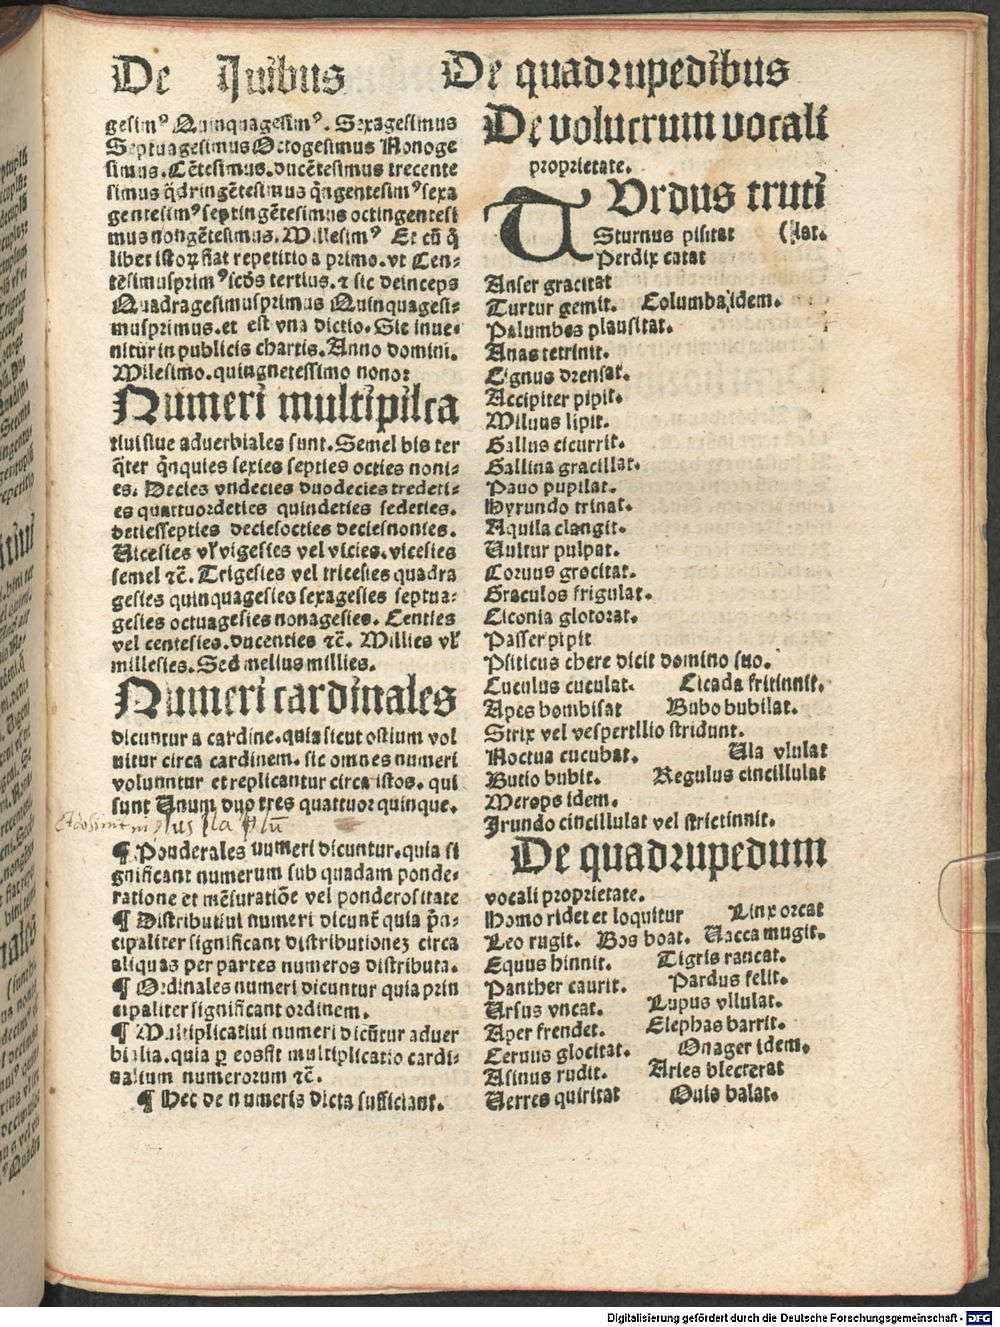 De Auibus De quadrupedibus
gesimꝰ Quinquagesimꝰ. Sexagesimus
Septuagesimus Octogesimus Nonoge
simus. Cētesimus. ducētesimus trecente
simus q̃dringētesimus q̃ngentesimꝰ sexa
gentesimꝰ septingētesimus octingentesi
mus nongētesimus. Millesimꝰ Et cū q̃
libet istoꝝ fiat repetitio a primo. vt Cen⸗
tesimusprimꝰ scd̃s tertius. ⁊ sic deinceps
Quadragesimusprimus Quinquagesi⸗
musprimus. et est vna dictio. Sic inue⸗
nitur in publicis chartis. Anno domini.
Milesimo. quingnetessimo nono:
Numeri multipilca
tiui siue aduerbiales sunt. Semel bis ter
q̃ter q̃nquies sexies septies octies noni⸗
es. Decies vndecies duodecies tredeti⸗
es quattuordeties quindeties sedeties.
detiessepties deciesocties deciesnonies.
Uicesies vl̕ vigesies vel vicies. vicesies
semel ⁊c̃. Trigesies vel tricesies quadra
gesies quinquagesies sexagesies septua⸗
gesies octuagesies nonagesies. Centies
vel centesies. ducenties ⁊c̃. Millies vl̕
millesies. Sed melius millies.
Numeri cardinales
dicuntur a cardine. quia sicut ostium vol
uitur circa cardinem. sic omnes numeri
voluuntur et replicantur circa istos. qui
sunt Unum duo tres quattuor quinque.
plus pla plū
¶ Ponderales numeri dicuntur. quia si
gnificant numerum sub quadam ponde⸗
ratione et mēsuratiōe vel ponderositate
¶ Distributiui numeri dicunt̃ quia p̃n⸗
cipaliter significant distributionez circa
aliquas per partes numeros distributa.
¶ Ordinales numeri dicuntur quia prin
cipaliter significant ordinem.
¶ Multiplicatiui numeri dicūtur aduer
bialia. quia ꝑ eos fit multiplicatio cardi⸗
nalium numerorum ⁊c̃.
¶ Hec de numeris dicta sufficiant.
De volucrum vocali
proprietate.
TUrdus truti
Sturnus pisitat (lat.
Perdix catat
Anser gracitat
Turtur gemit. Columba idem.
Palumbes plausitat.
Anas tetrinit.
Cignus drensat.
Accipiter pipit.
Miluus lipit.
Gallus cicurrit.
Gallina gracillat.
Pauo pupilat.
Hyrundo trinat.
Aquila clangit.
Uultur pulpat.
Coruus grocitat.
Graculos frigulat.
Ciconia glotorat.
Passer pipit
Psiticus chere dicit domino suo.
Cuculus cuculat. Cicada fritinnit.
Apes bombisat Bubo bubilat.
Strix vel vespertilio stridunt.
Noctua cucubat. Ula vlulat
Butio bubit. Regulus cincillulat
Merops idem.
Irundo cincillulat vel strictinnit.
De quadrupedum
vocali proprietate.
Homo ridet et loquitur Linx orcat
Leo rugit. Bos boat. Uacca mugit.
Equus hinnit. Tigris rancat.
Panther caurit. Pardus felit.
Ursus vncat. Lupus vllulat.
Aper frendet. Elephas barrit.
Ceruus glocitat. Onager idem.
Asinus rudit. Aries blecterat
Uerres quiritat Ouis balat.
Digitalisierung gefördert durch die Deutsche Forschungsgemeinschaft - DFG